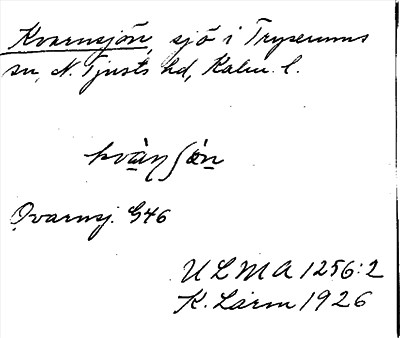 Kvarnsjön, sjö i Tryserums
sn, N. Tjusts hd, Kalm. l.
kvà̱ɳʃö̀n̠
Qvarnsj. G46
ULMA 1256:2
K. Lärm 1926